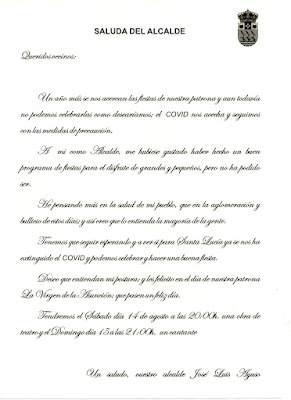 SALUDA DEL ALCALDE
Queridos vecinos:
Un año más se nos acercan las fiestas de nuestra patrona y aun todavía
no podemos celebrarlas como desearíamos; el COVID nos acecha y seguimos
con las medidas de precaución.
A mi como Alcalde, me hubiese gustado haber hecho un buen
programa de fiestas para el disfrute de grandes y pequeños, pero no ha podido
ser.
He pensando más en la salud de mi pueblo, que en la aglomeración y
bullicio de estos días; y así creo que lo entienda la mayoría de la gente.
Tenemos que seguir esperando y a ver si para Santa Lucía ya se nos ha
extinguido el COVID y podemos celebrar y hacer una buena fiesta.
Deseo que entiendan mi postura; y les felicito en el día de nuestra patrona
La Virgen de la Asunción; que pasen un feliz día.
Tendremos el Sábado día 14 de agosto a las 20:00h. una obra de
teatro y el Domingo día 15 a las 21:00h. un cantante
Un saludo, vuestro alcalde José Luis Ayuso